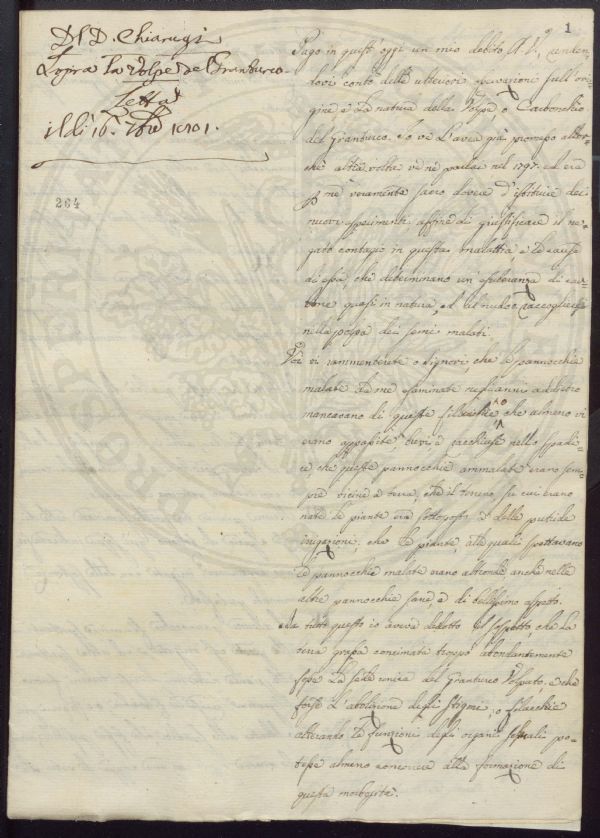 Del D. Chiarugi
Sopra la Volpe del Granturco
Letta
il dì 16. 1801.
264
1
Pago in quest'oggi un mio debito A. V., renden-
dovi conto delle ulteriori osservazioni sull'ori-
gine e la natura della Volpe, o Carbonchio
del Granturco. Io ve l'aveva già promesso allor-
chè altra volta ve ne parlai nel 1797. ed era
p me veramente sacro dovere d'istituire dei
nuovi esperimenti affine di giustificare il ne-
gato contagio in questa malattia e le cause
di essa, che determinano un'esuberanza di car-
bone quasi in natura, ed il nudo a raccogliersi
nella polpa dei semi malati.
Voi vi rammenterete o Signori, che le pannocchie
malate da me esaminate negli anni addietro
mancavano di queste filacciche, o che almeno vi
erano appassite, brevi e racchiuse nello spadi-
ce che queste pannocchie ammalate erano sem-
pre vicine a terra, che il terreno su cui erano
nate le piante era sottoposto a delle putride
irrigazioni; che le piante, alle quali spettavano
le pannocchie malate erano altronde anche nelle
altre pannocchie sane, e di bellissimo aspetto.
Da tutto questo io aveva dedotto il sospetto, che la
terra grassa concimata troppo abondantemente
fosse la sede unica del Granturco Volpato, e che
forse l'abolizione degli stigmi, o filacciche
alterando le funzioni degli organi sessuali po-
tesse almeno concorrere alla formazione di
questa morbosità.